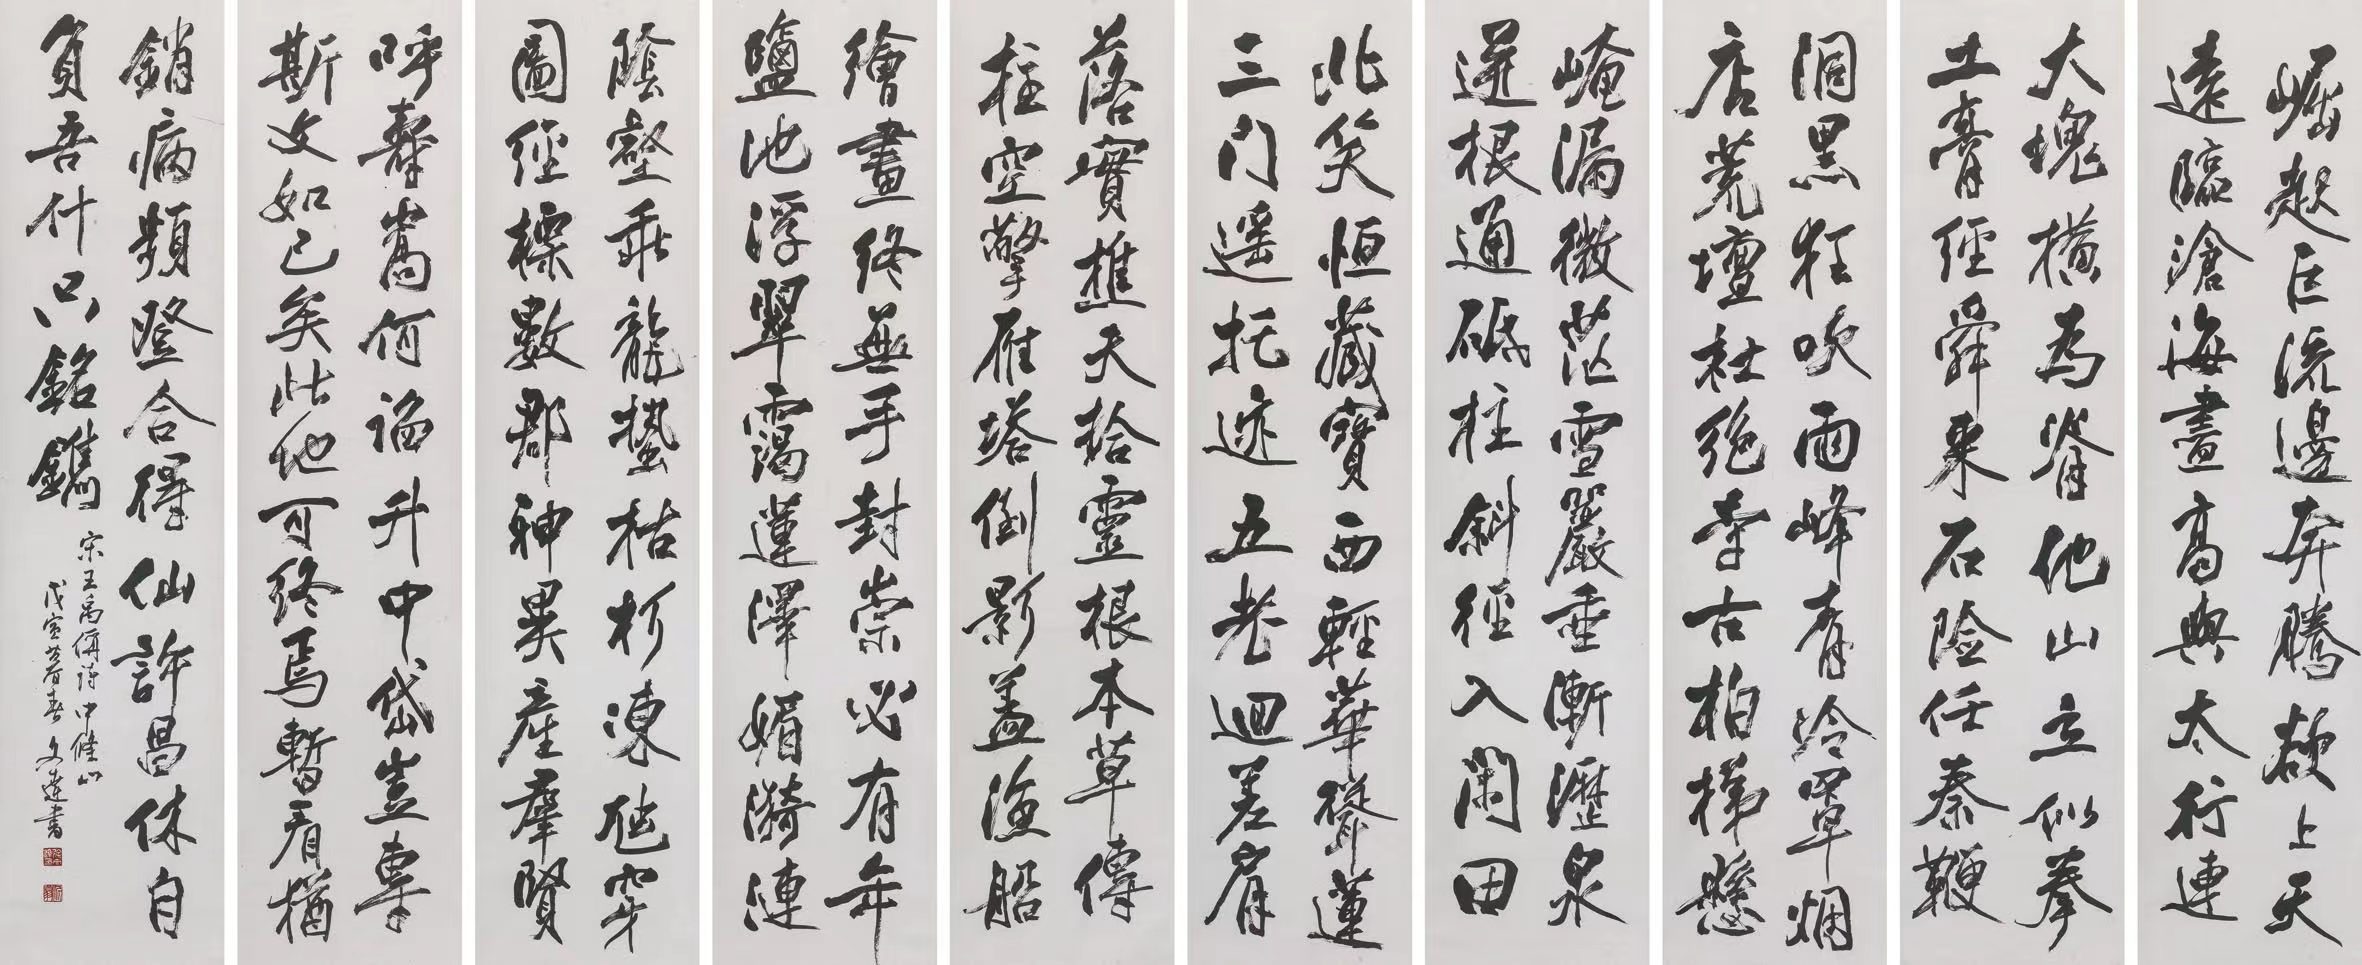 崛起巨流邊奔騰欲上天
遠臨滄海盡高與太行連
大塊橫為脊他山立似拳
土膏經舜來石險任秦鞭
洞黑狂吹雨峰青冷罩烟
店荒壇社絕李古柏梯懸
崦漏微茫雪巖垂漸瀝泉
迸根通砥柱斜徑入閑田
北笑恒藏寶西輕華聳蓮
三門遙托迹五老迥差肩
落實樵夫拾靈根本草傳
柱空擎雁塔倒影蓋漁船
繪畫終無手封崇必有年
鹽池浮翠靄蓮澤媚漪漣
陰壑乖龍蟄枯杉凍虺穿
圖經標數郡神異產群賢
呼壽嵩何諂升中岱豈專
斯文如已矣此地可終焉暫看猶
銷病頻登合得仙許昌休自
負吾什只銘鐫
宋王禹偁詩中條山
戊寅暮春 文達書